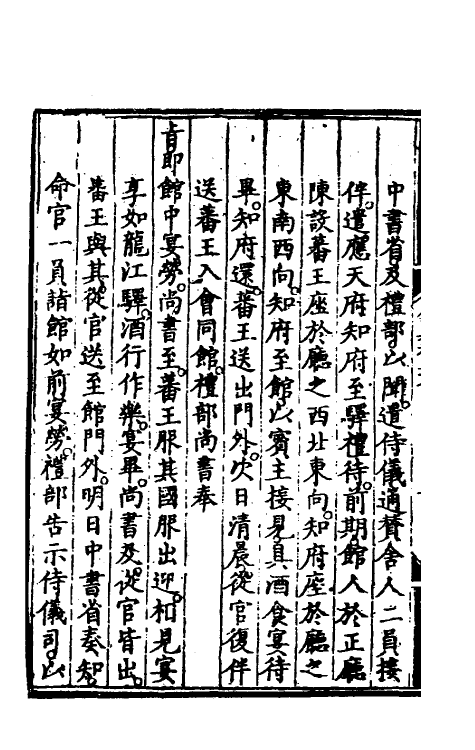 中書省及禮部以聞遣侍儀通贊舍人二員接
伴遣應天府知府至驛禮待前期館人於正廳
陳設蕃王座於廳之西北東向知府座於廳之
東南西向知府至館以賓主接見具酒食宴待
畢知府還蕃王送出門外次日清晨從官復伴
送蕃王入會同館禮部尚書奉
旨即館中宴勞尚書至蕃王服其國服出迎相見宴
享如龍江驛酒行作樂宴畢尚書及從官皆出
蕃王與其從官送至館門外明日中書省奏知
命官一員詣館如前宴勞禮部告示侍儀司以